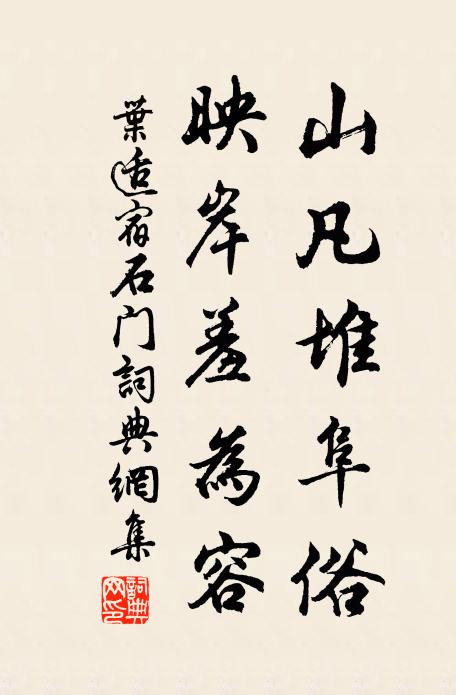 山凡堆阜俗
映岸羞為容
葉适宿石门詞典網集
詞典网印